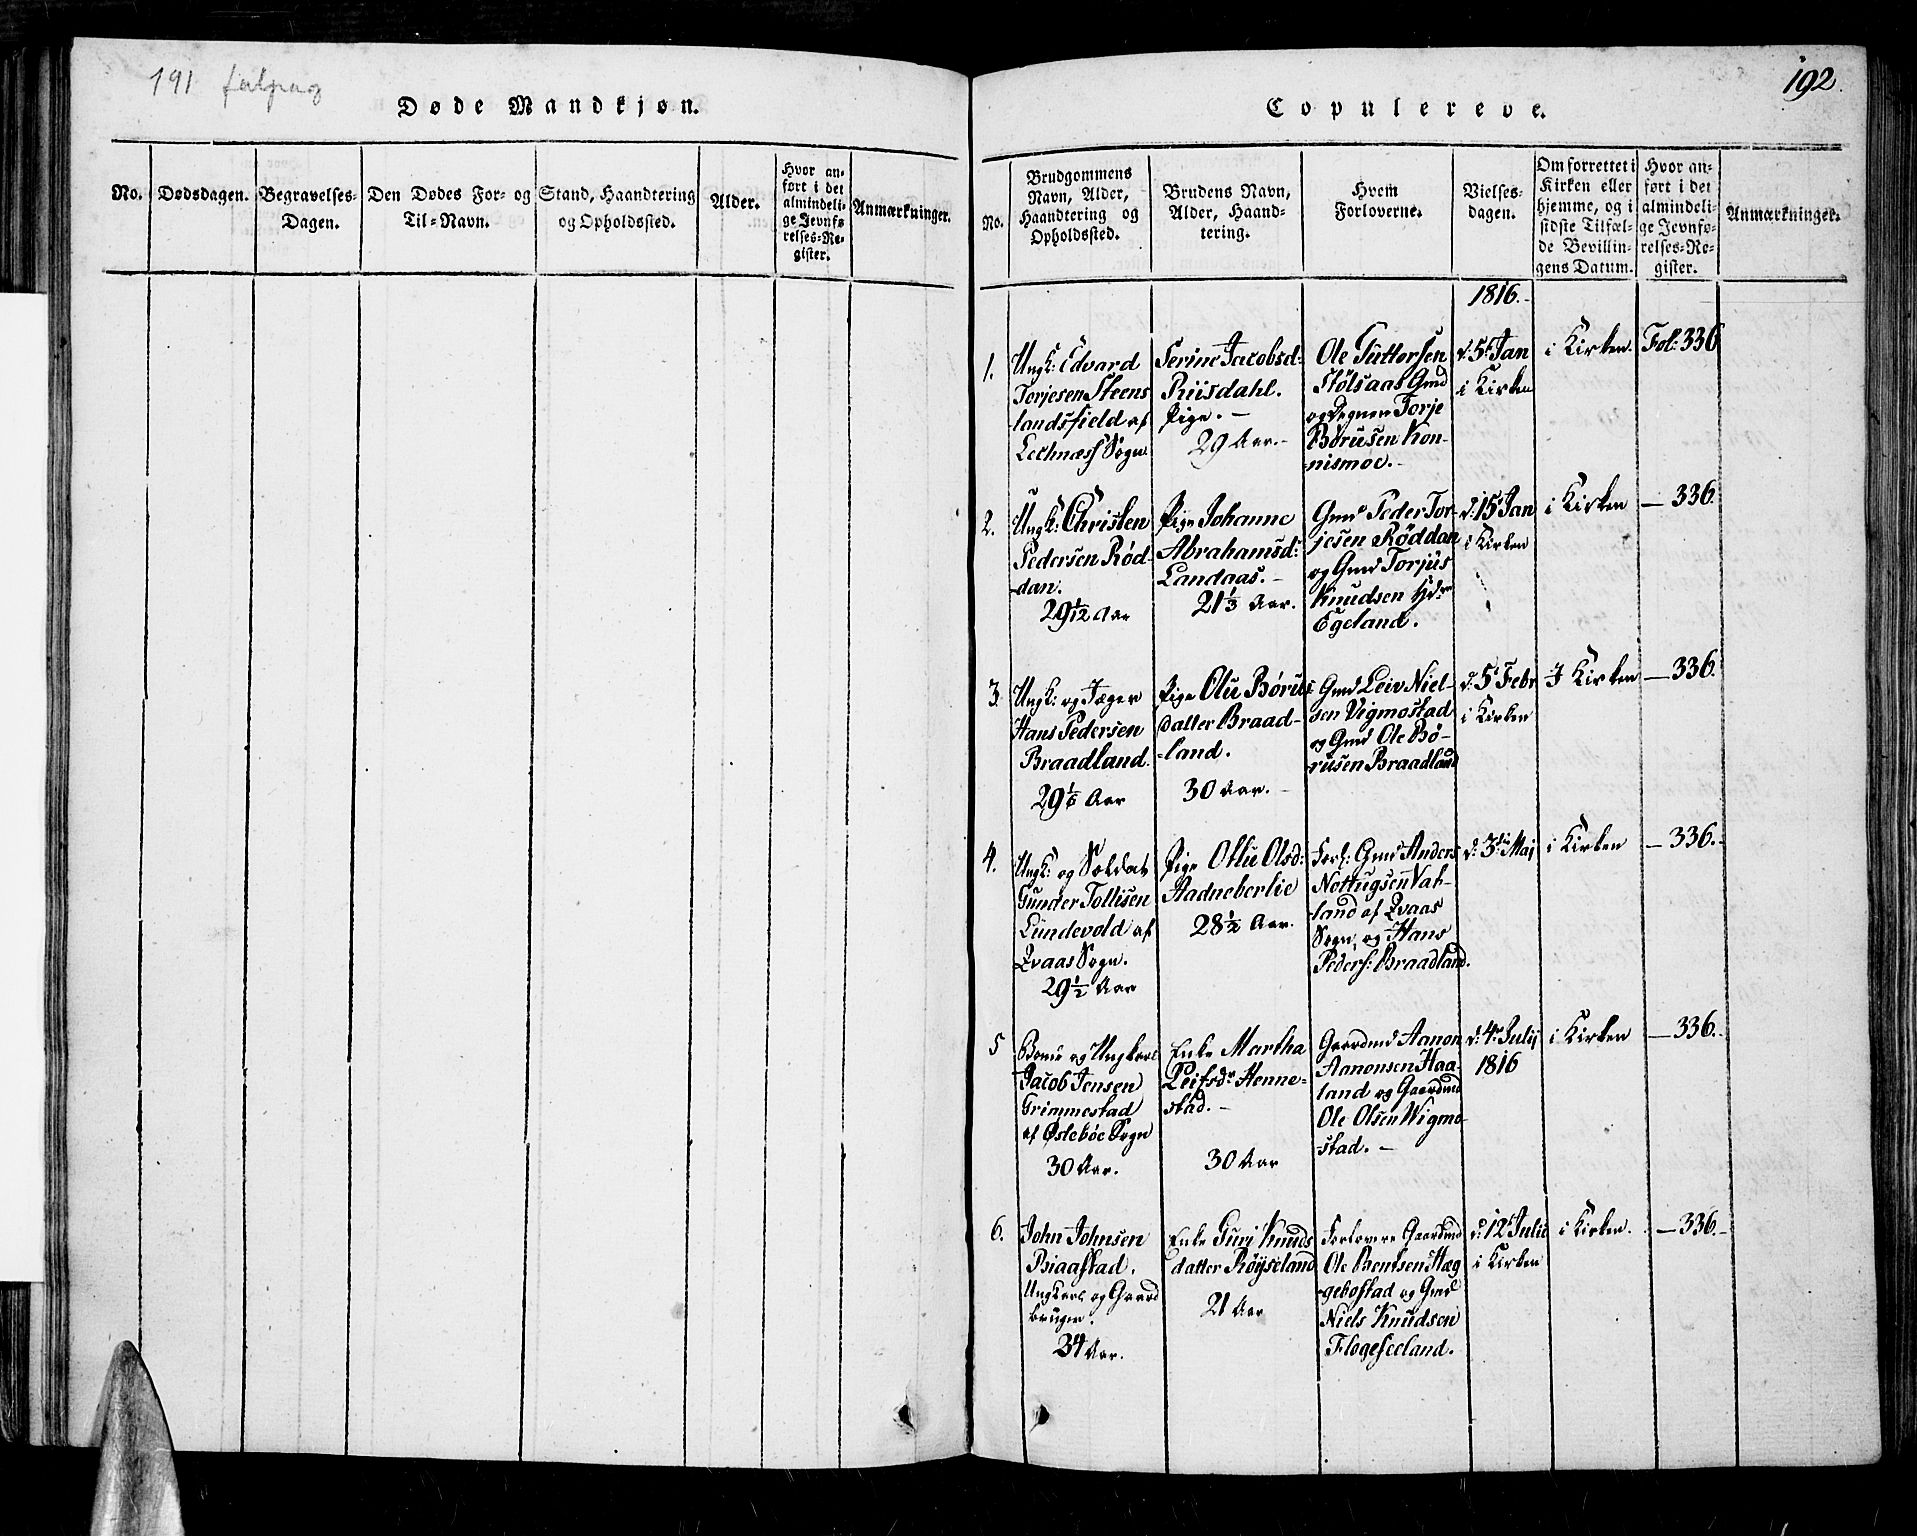 191
Døde Mandkjøn.
No.
Dødsdagen.
Begravelses-
Dagen.
Den Dødes For- og
Til-Navn.
Stand, Haandtering
og Opholdssted.
Alder.
Hvor an-
ført i det
almindeli-
ge Jevnfø
relses-Re-
gister.
Anmærkninger.
192.
Copulereve.
No.
Brudgommens
Navn, Alder,
Haandtering og
Opholdssted.
Brudens Navn,
Alder, Haand-
tering.
Hvem
Forloverne.
Vielses-
dagen.
Om forrettet i
Kirken eller
hjemme, og i
sidste Tilfæl-
de Bevillin-
gens Datum.
Hvor an-
ført i det
almindeli-
ge Jevnfø-
relses-Re-
gister.
Anmærkninger.
1816.
1.
Ungk: Edvard
Torjesen Steens
landsfield af
Sogn
Serine Jacobsd:
Riisdahl.
Pige. -
29 Aar.-
Ole Guttorsen
Stølsaas Gmd
og Degnen Torje
Børusen Kon-
nismoe.-
d: 5t Jan
i Kirken
i Kirken
Fol: 336
2.
Ungk: Christen
Pedersen Rød-
dan.
29 1/12 Aar
Pige Johanne
Abrahamsd:
Landaas. -
21 1/3 Aar.
Gmd Peder Tor-
jesen Røddan
og Gmd Torjus
Knudsen Ydr
Egeland.
d: 15t Jan
i Kirken
i Kirken
- 336.
3.
Ungk: og Jæger
Hans Pedersen
Braadland.
29 1/6 Aar
Pige Olu Børus
datter Braad-
-land.
30 Aar. -
Gmd Leiv Niel-
sen Vigmostad
og Gmd Ole Bø-
rusen Braadland
d: 5t Febr
i Kirken
I Kirken
- 336.
4.
Ungk: og Soldat
Gunder Tollisen
Lundevold af
Qvaas Sogn.
29 1/2 Aar
Pige Ollu Olsd:
Aadneberlie
28 1/2 Aar.
Forl: Gmd Anders
Nottugsen Vat-
land af Qvaas
Sogn, og Hans
Peders: Braadland.
d: 3die Maj
i Kirken
- 336.-
5
Bonde og Ungkarl
Jacob Jensen
Grimmestad
af Øslebøe Sogn
30 Aar.
Enke Martha
Leifsdr Henne-
stad. -
30 Aar
Gaardmd Aanon
Aanonsen Haa-
land og Gaardmd
Ole Olsen Wigmo-
stad. -
d: 4de Julij
1816
i Kirken
- 336.-
6.
John Johnsen
Biaastad.
Ungkarl og Gaard
bruger.
34 Aar.
Enke Guri Knuds
datter Røyseland
21 Aar
Forlovere Gaardmd
Ole Bentsen Hæg
gebostad og Gmd
Niels Knudsen
Flogeseeland.
d: 12t Julii
i Kirken
i Kirken.
- 336.-